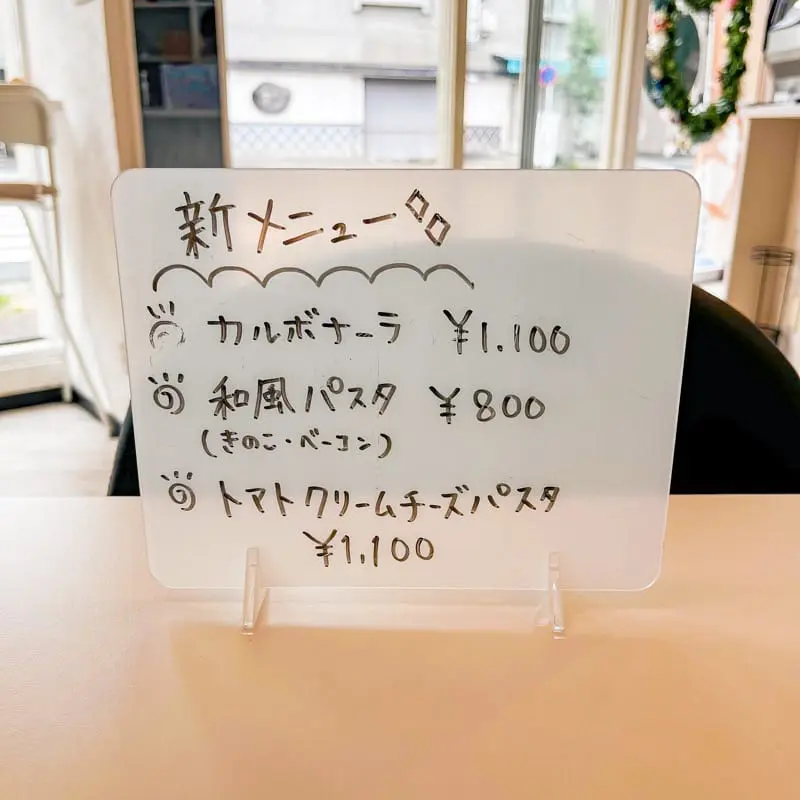 新メニュー
カルボナーラ ¥1.100
和風パスタ ¥800
(きのこ・ベーコン)
トマトクリームチーズパスタ
¥1.100